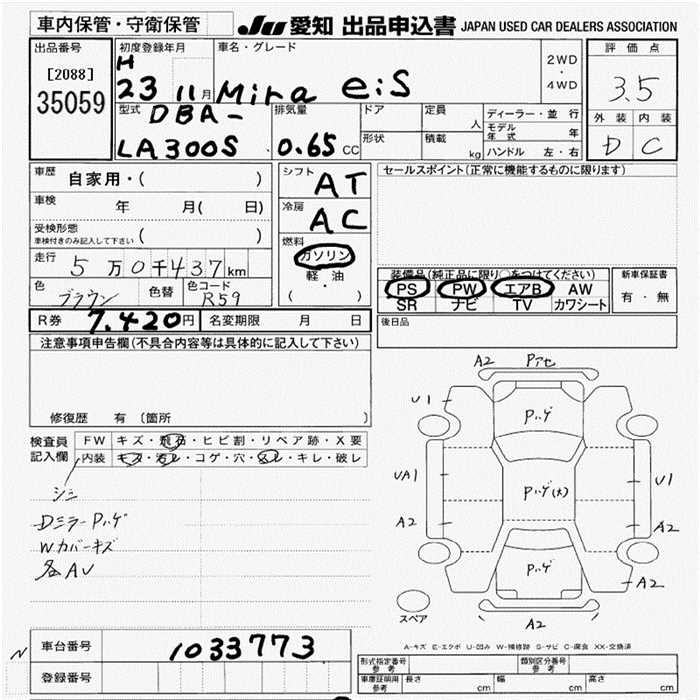 車内保管・守衛保管
JU 愛知 出品申込書 JAPAN USED CAR DEALERS ASSOCIATION
出品番号
[2088]
35059
初度登録年月
H
23 11月
車名・グレード
Mira e:S
2WD
・
4WD
評価点
3.5
外装 内装
D C
型式
DBA-
LA300S
排気量
0.65 CC
ドア
形状
定員
人
積載
kg
ディーラー・並行
モデル年式 年
ハンドル 左・右
車歴 自家用・( )
車検 年 月( 日)
受検形態
車検付きのみ記入して下さい ( )
走行 5万0千437km
色 ブラウン 色替 色コード R59
R券 7,420円 名変期限 月 日
シフト AT
冷房 AC
燃料
ガソリン
軽・油
( ・ )
セールスポイント(正常に機能するものに限ります)
装備品(純正品に限り○をつけてください)
PS PW エアB AW
SR ナビ TV カワシート
新車保証書
有・無
後日品
注意事項申告欄(不具合内容等は具体的に記入して下さい)
修復歴 有〔箇所 〕
検査員
記入欄
FW キズ・飛石・ヒビ割・リペア跡・X要
内装 キズ・汚レ・コゲ・穴・スレ・キレ・破レ
シミ
Dミラー Pハゲ
Wカバーキズ
各AU
A2 Pアセ
U1 Pハゲ
UA1 Pハゲ(大) U1
A2 A2
Pハゲ A2
A2
スペア
A-キズ E-エクボ U-凹み W-補修跡 S-サビ C-腐食 XX-交換済
N
車台番号 1033773
登録番号
形式指定番号
参考
類別区分番号
参考
車庫証明用
参考
長さ cm 幅 cm 高さ cm